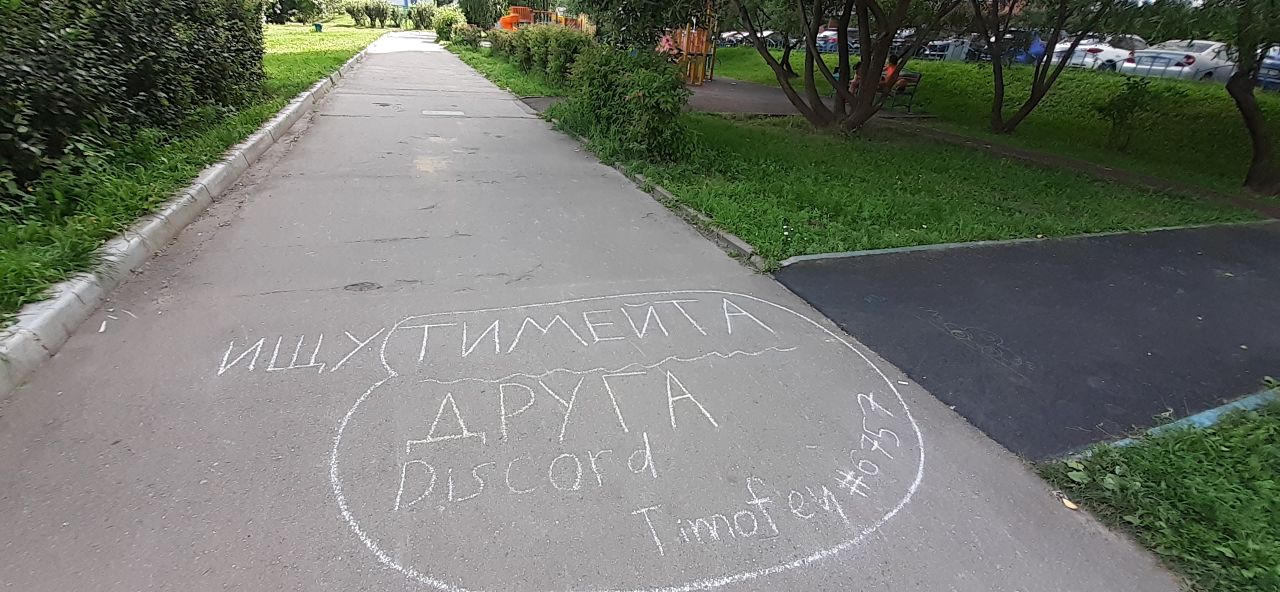 ИЩУ ТИМЕЙТА
ДРУГА
Discord
Timofey#6757